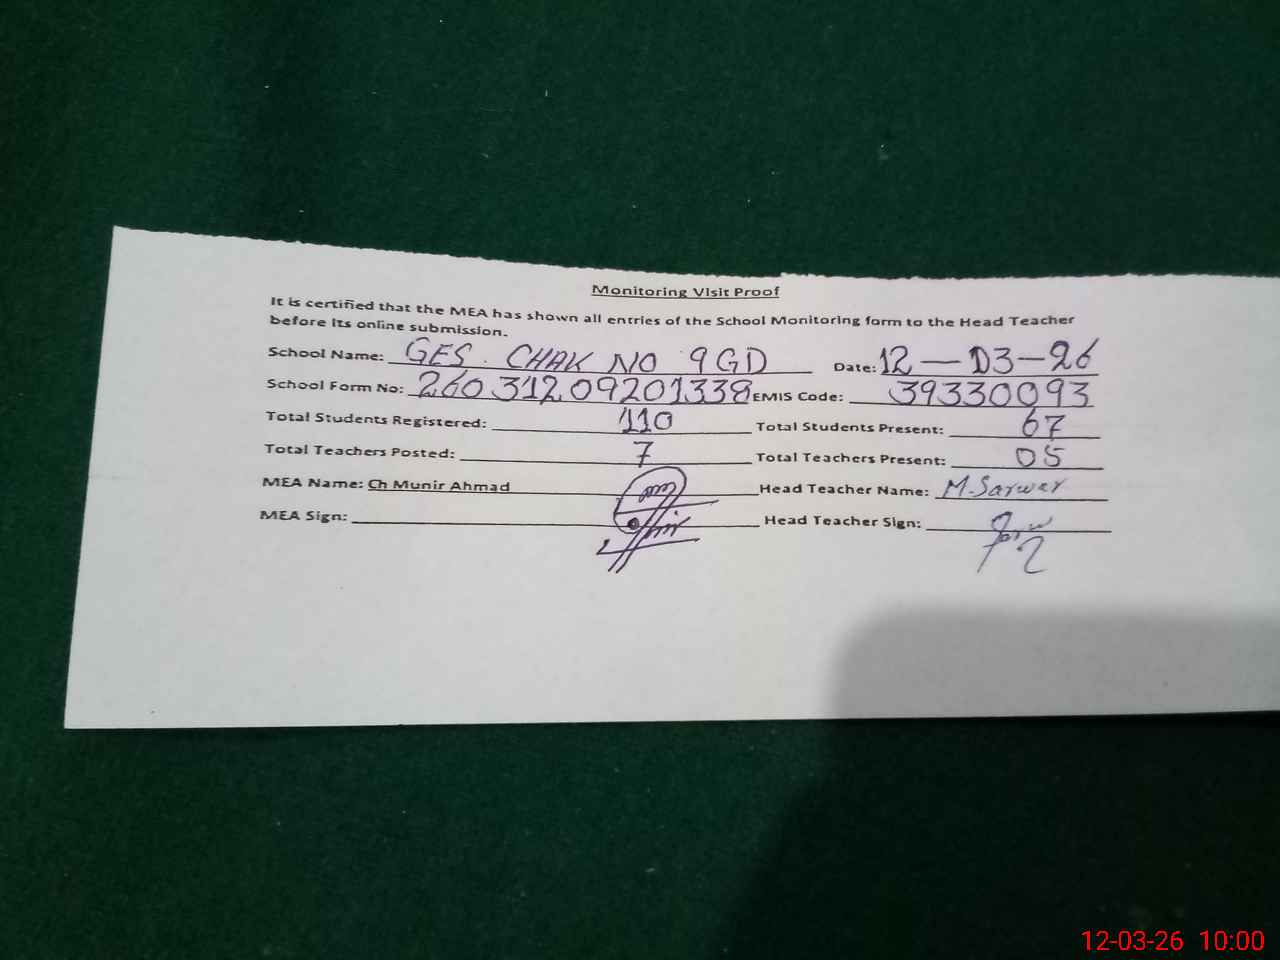 Monitoring Visit Proof
It is certified that the MEA has shown all entries of the School Monitoring form to the Head Teacher
before its online submission.
School Name: GES. CHAK NO 9GD Date: 12-03-26
School Form No: 26031209201338 EMIS Code: 39330093
Total Students Registered: 110 Total Students Present: 67
Total Teachers Posted: 7 Total Teachers Present: 05
MEA Name: Ch Munir Ahmad Head Teacher Name: M. Sarwar
MEA Sign: Head Teacher Sign:
12-03-26 10:00